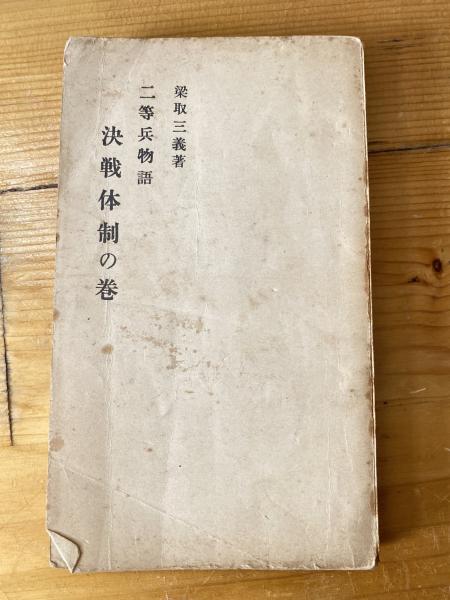 梁取三義著
二等兵物語
決戦体制の巻